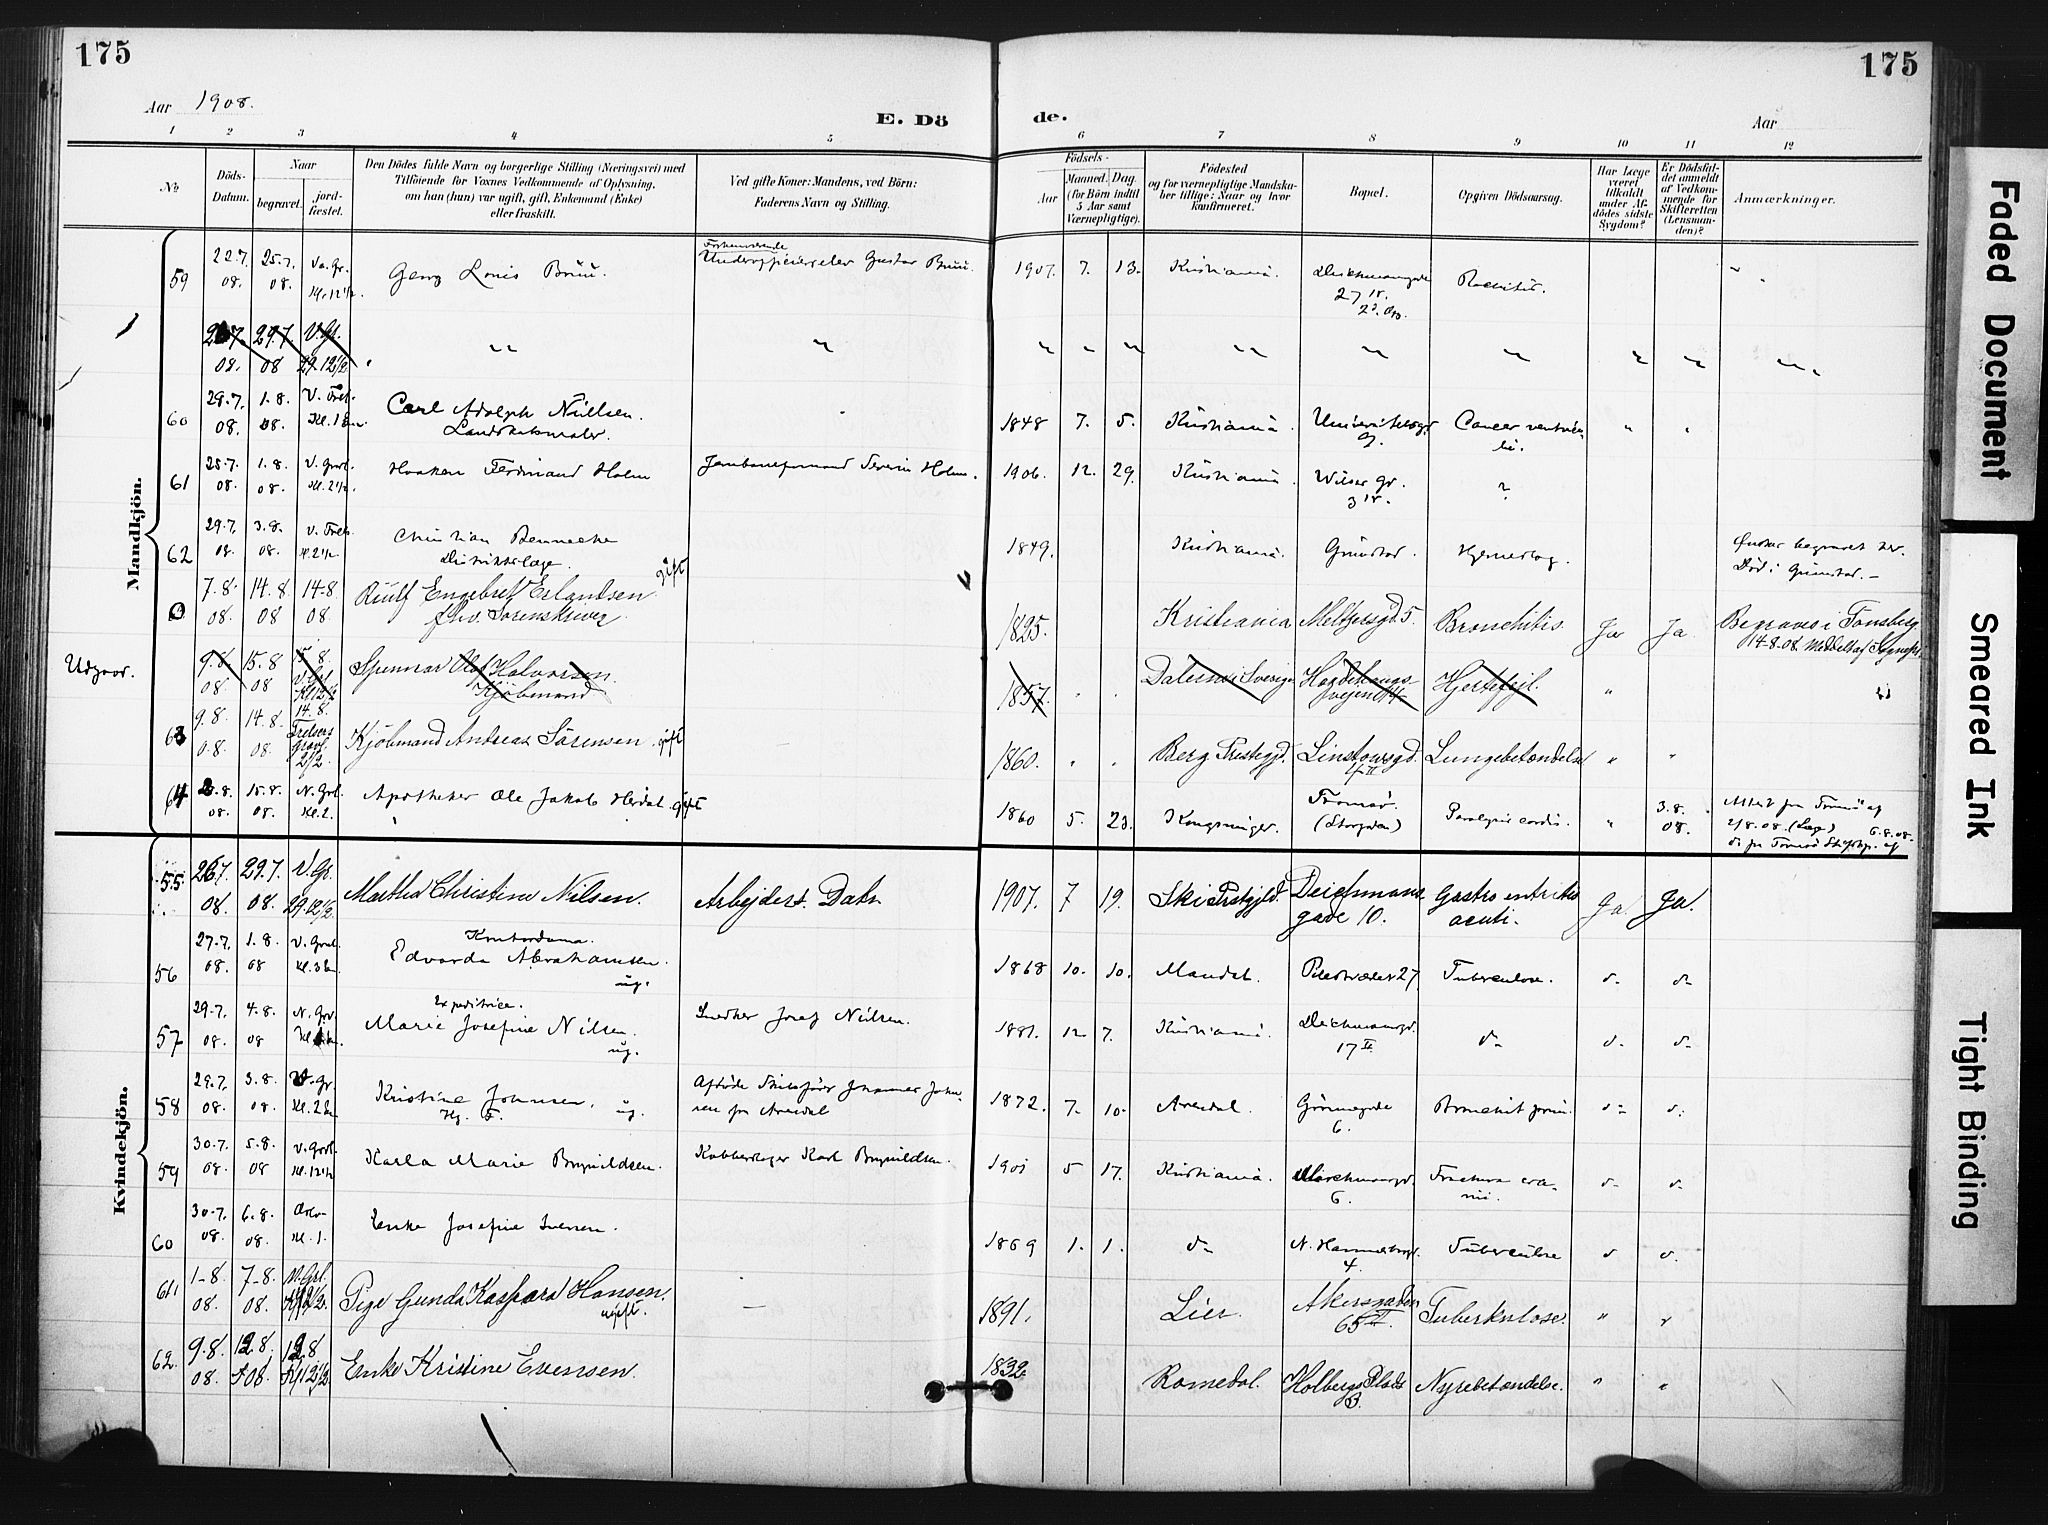 175
175
Aar 1908.
E. Dö
de.
Aar
1 2 3 4 5 6 7 8 9 10 11 12
№
Döds-Datum.
Naar
begravet.
jord-fæstet.
Den Dödes fulde Navn og borgerlige Stilling (Næringsvei) med
Tilföiende for Voxnes Vedkommende af Oplysning,
om han (hun) var ugift, gift, Enkemand (Enke)
eller fraskilt.
Ved gifte Koner: Mandens, ved Börn:
Faderens Navn og Stilling.
Födsels-
Aar
Maaned. Dag
(for Börn indtil
5 Aar samt
Værnepligtige).
Födested
og for værnepligtige Mandska-
ber tillige: Naar og hvor
konfirmeret.
Bopæl.
Opgiven Dödsaarsag.
Har Læge
været
tilkaldt
under Af-
dödes sidste
Sygdom?
Er Dödsfal-
det anmeldt
af Vedkom-
mende for
Skifteretten
(Lensman-
den)?
Anmærkninger.
Mandkjön.
59 22.7. 08. 25.7. 08. Va. Gr. Kl. 12½. Georg Louis Bruu. Forhenværende Underofficierselev Gustav Bruu. 1907. 7. 13. Kristiania. Deichmansgade 27 Rachitis.
267. 08. 29.7. 08 V. Gr. 29. 12½
60 29.7. 08. 1.8. 08. Carl Adolph Nielsen. Landskabsmaler. 1848 7. 5. Kristiania. Universitetsgd. 9. Cancer ventriculi.
61 25.7. 08. 1.8. 08. V. Grl. Kl. 2½. Haaken Ferdinand Holm Severin Holm. 1906. 12. 29. Kristiania 3
62 29.7. 08. 3.8. 08. Kl. 2½. Christian Bennecke Distriktslæge. gift 1849. Kristiania. Grimstad. Hjerneslag. Ønskes begravet her. Död i Grimstad.
7.8. 08. 14.8. 08 14-8. 08. Engebret Erlandsen fhv. Sorenskriver 1825. Kristiania Meltzersgd 5. Bronchitis Ja Ja. Begraves i Tönsberg 14-8.08.
Udgaar. 9.8 08. 15.8 08 15.8. V. Grl. Olaf Halvorsen Kjöbmand 1857. Dalerne i Sverige Hjertefejl.
63 9.8. 08. 14.8. 08 14.8. Frelsers grav. 2½. Kjöbmand Andreas Sörensen. gift 1860. Berg Prestegjd. Linstowsgd. 4 II Lungebetændelse
64 08. 15.8. 08. N. Grl. Kl. 2. Apotheker Ole Jakob Herdal. gift 1860 5. 23. Kongsvinger. Tromsö. (Storgaden) Paralysis cordis. 3.8. 08. Attest fra Tromsö af 2/8.08. (Læge) 6.8.08.
Kvindekjön.
55. 267. 08. 29.7. 08. V. Gr. 29. 12½. Martha Christine Nilsen. Arbejders Datr. 1907. 7 19. Ski Prstgjld. Deichmans gade 10. Gastro entritis acuti. Ja Ja.
56 27.7. 08. 1.8. 08 V. Grl. Kl. 3 Kontordame. Edvarda Abrahamsen. ug. 1868 10. 10. Mandal. Pilestrædet 27 Tuberculose.
57 29.7. 08. 4.8. 08 Expeditrice. Marie Josefine Nilsen. ug. Snedker Josef Nilsen. 1881. 12 7. Kristiania. Deichmansgd. 17 II
58 29.7. 08. 3.8. 08. V. Gr. Kl. 2 Kristine Johnsen. ug. Afdöde Skibsförer Johannes Johnsen fra Arendal 1872. 7. 10. Arendal. Grönnegade 6.
59 30.7. 08. 5.8. 08 V. Grl. Kl. 12½ Karla Marie Brynildsen. Kobberslager Karl Brynildsen. 1901 5 17. Kristiania. 6. Fractura cranii.
60 30.7. 08. 6.8. 08. Oslo Kl. 1. Enke Josefine Iversen. 1869 1. 1. 4. Tuberculose
61 1-8. 08. 7-8. 08. Pige Gunda Kaspara Hansen. ugift. 1891. Lier. Akersgaden 65 II Tuberkulose.
62. 9.8. 08. 12.8. 08. 12.8 Kl 12½ Enke Kristine Evensen. 1832. Romedal. Holbergs Plads 3. Nyrebetændelse.
Faded Document
Smeared Ink
Tight Binding